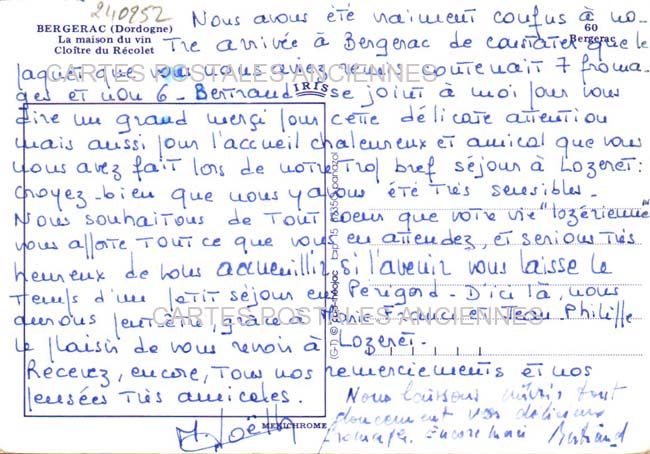 240952
BERGERAC (Dordogne)
La maison du vin
Cloître du Récolet
60
Bergerac
Nous avons été vraiment confus à no-
tre arrivée à Bergerac de constater que le
paquet que vous nous aviez remis contenait 7 froma-
ges et non 6 _ Bertrand se joint à moi pour vous
IRIS
dire un grand merci pour cette délicate attention
mais aussi pour l'accueil chaleureux et amical que vous
nous avez fait lors de notre trop bref séjour à Lozeret:
croyez-bien que nous y avons été très sensibles_
Nous souhaitons de tout coeur que votre vie "lozérienne"
vous apporte tout ce que vous en attendez, et serions très
heureux de vous accueillir si l'avenir vous laisse le
temps d'un petit séjour en Périgord_ D'ici là, nous
aurons peut-être, grâce à Marie-France et Jean-Philippe
le plaisir de vous revoir à Lozeret_
Recevez, encore, tous nos remerciements et nos
pensées très amicales.
Nous laissons mûrir tout
doucement vos délicieux
fromages. Encore merci Bertrand
MEXICHROME
CARTES POSTALES ANCIENNES
CARTES POSTALES ANCIENNES